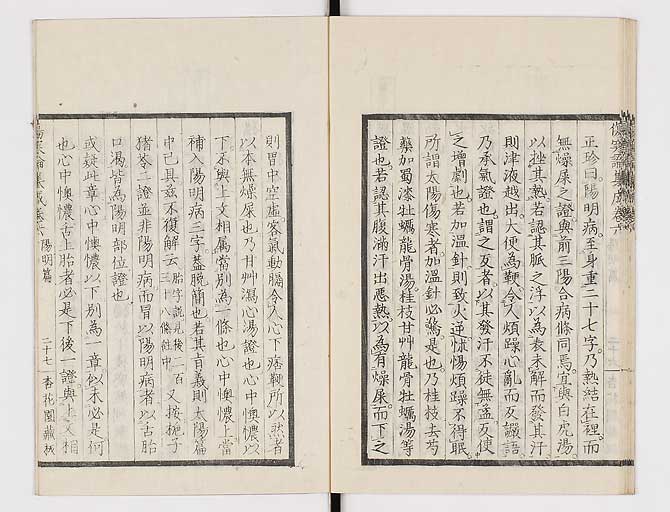 正珍曰陽明病至身重二十七字乃熱結在裡而
無燥屎之證與前三陽合病條同焉宜與白虎湯
以挫其熱若認其脈之浮以為表未解而發其汗
則津液越出大便為鞕令人煩躁心亂而反讝語
乃承氣證也謂之反者以其發汗不徒無益反使
之增劇也若加溫針則致火逆怵惕煩躁不得眠
所謂太陽傷寒者加溫針必驚是也乃桂枝去芍
藥加蜀漆牡蠣龍骨湯桂枝甘艸龍骨牡蠣湯等
證也若認其腹滿汗出惡熱以為有燥屎而下之
則胃中空虛客氣動膈令人心下痞鞕所以然者
以本無燥屎也乃甘艸瀉心湯證也心中懊憹以
下不與上文相屬當別為一條也心中懊憹上當
補入陽明病三字蓋脫簡也若其肯義則太陽篇
中已具茲不復解云胎字說見後二百三十八條註中又按梔子
豬苓二證並非陽明病而冒以陽明病者以舌胎
口渴皆為陽明部位證也
或疑此章心中懊憹以下別為一章似未必是何
也心中懊憹舌上胎者必是下後一證與上文相
陽明篇
二十七
杏花園藏板